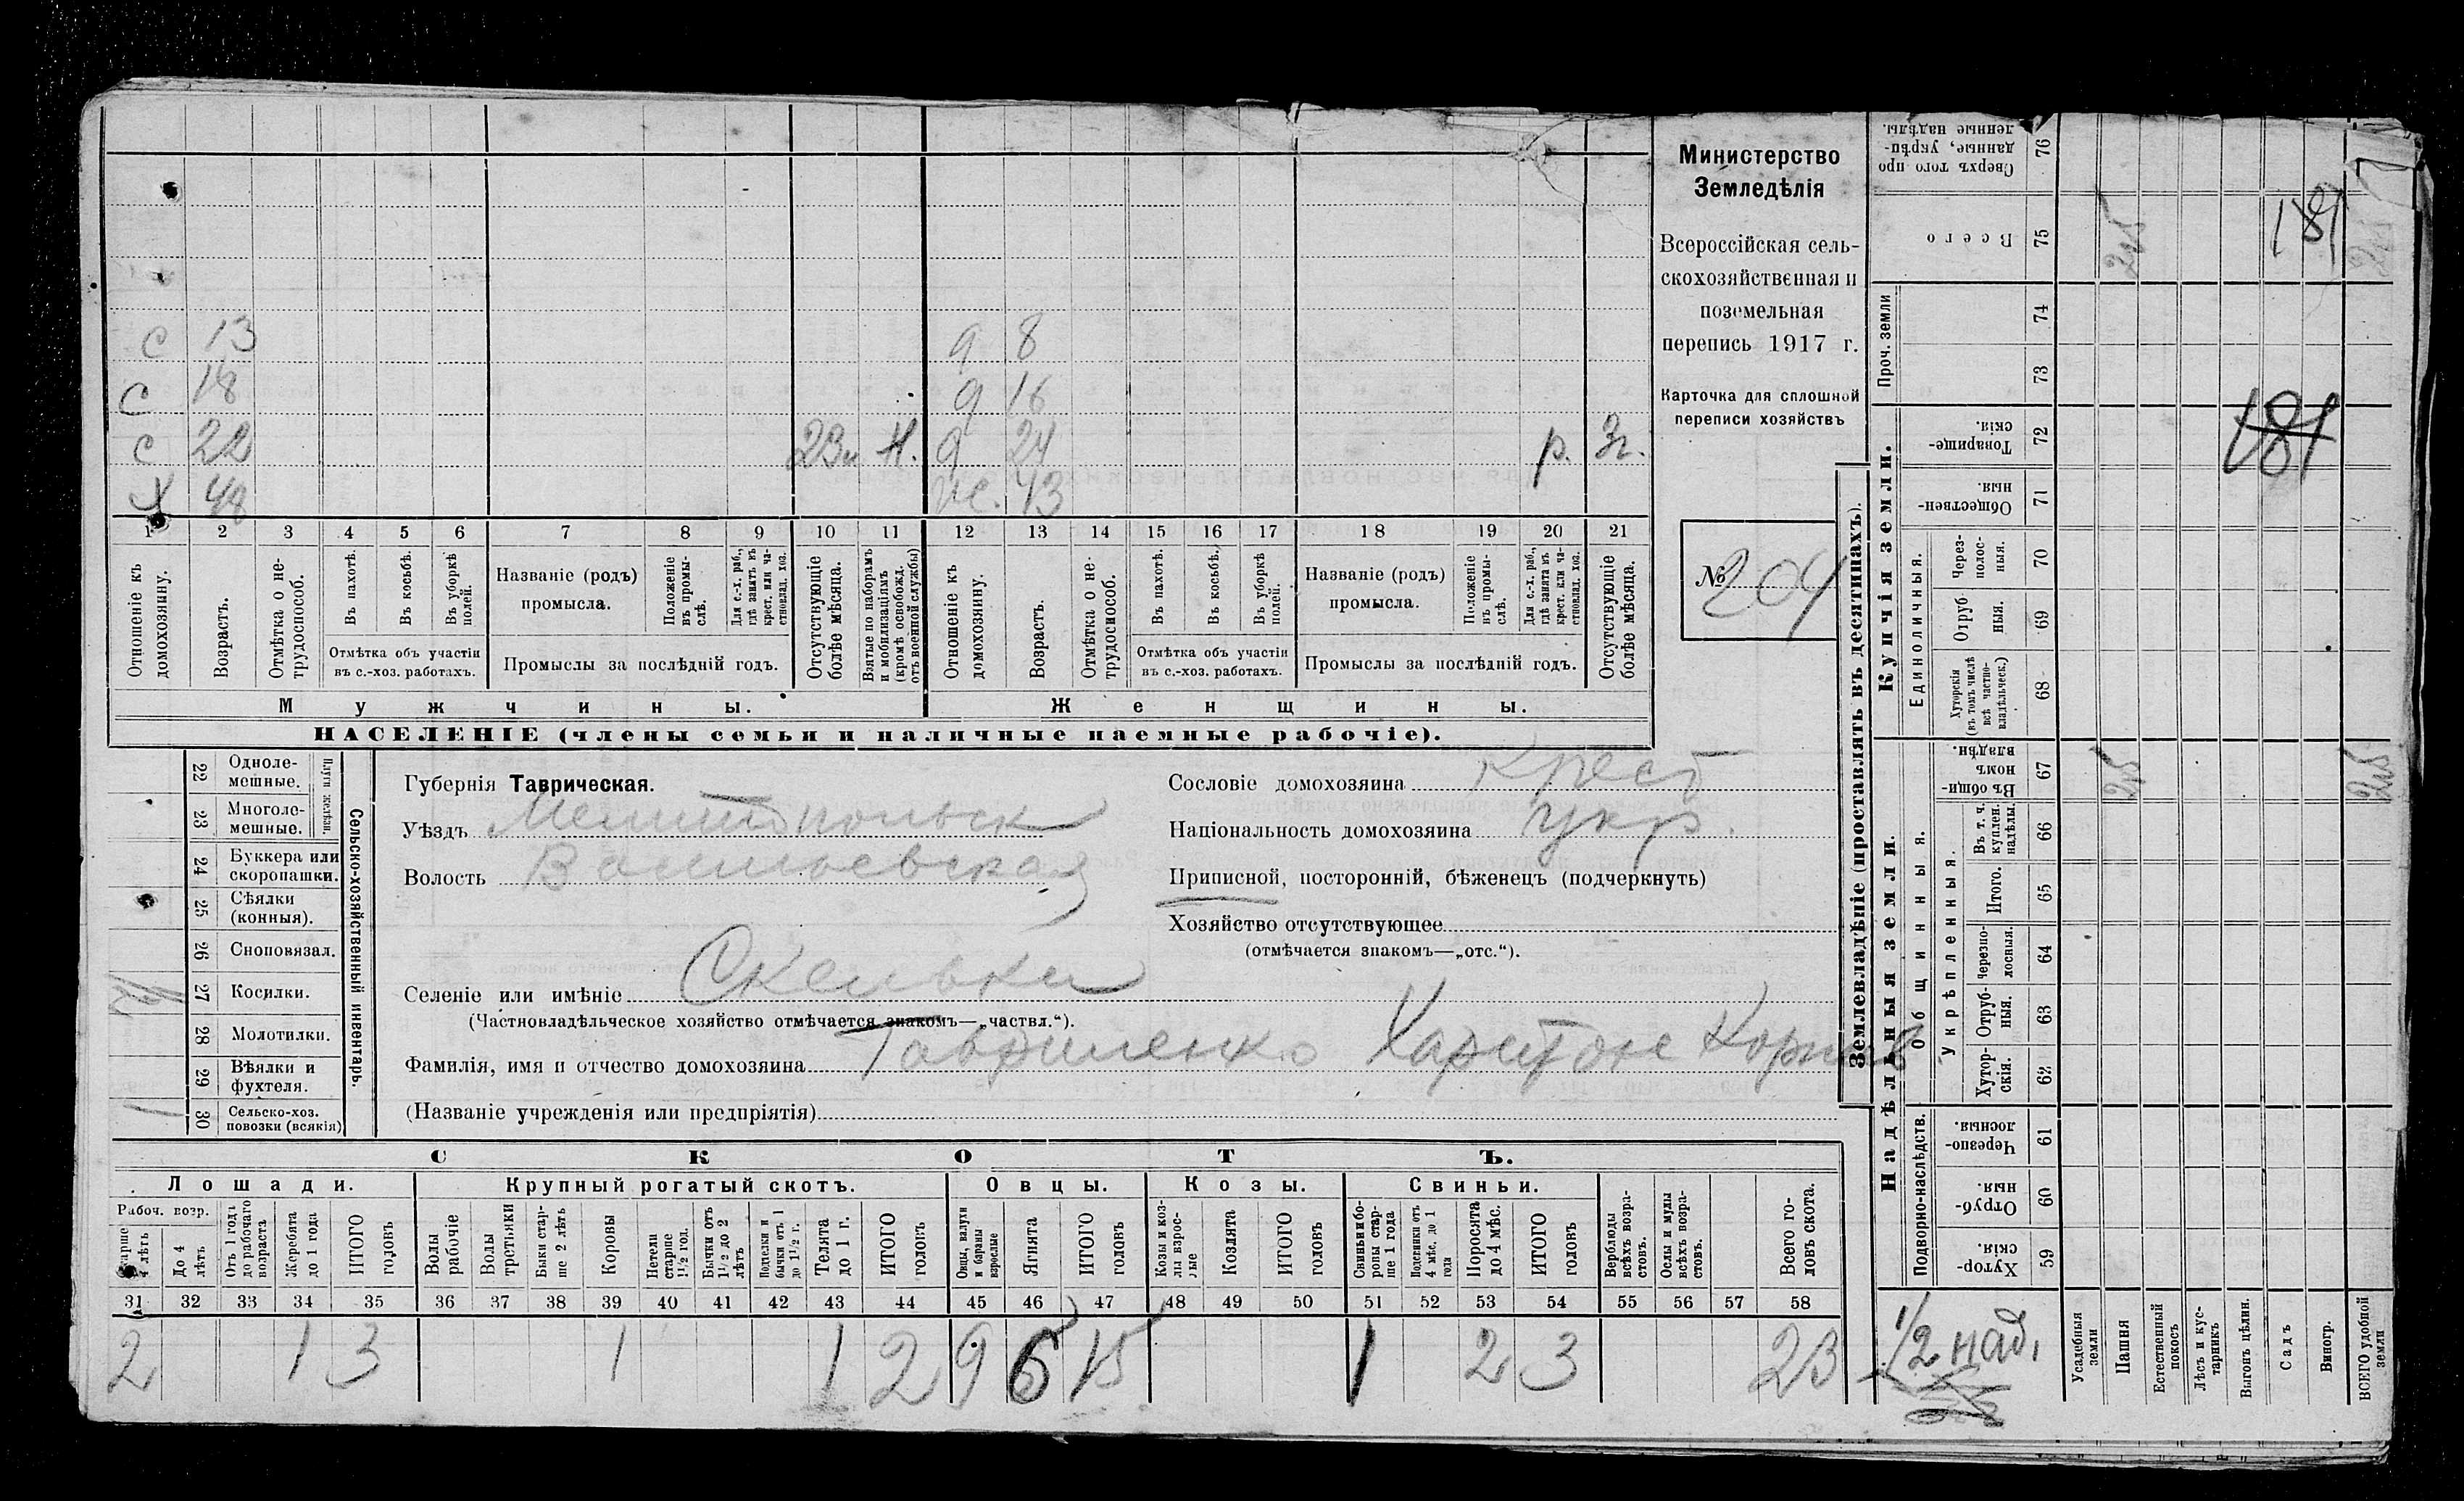 Министерство
Земледѣлія
Всероссійская сель-
скохозяйственная и
поземельная
перепись 1917 г.
Карточка для сплошной
переписи хозяйствъ
№ 204
с 13
с 18
с 22 23м Н.
х 48
д 8
д 16
д 24 р. 3г.
ж. 43
1 2 3 4 5 6 7 8 9 10 11 12 13 14 15 16 17 18 19 20 21
Отношеніе къ домохозяину.
Возрастъ.
Отмѣтка о не-трудоспособ.
Въ пахотѣ.
Въ косьбѣ.
Въ уборкѣ полей.
Отмѣтка объ участіи
въ с.-хоз. работахъ.
Названіе (родъ)
промысла.
Положеніе въ промы-слѣ.
Для с.-х. раб., гдѣ занятъ въ крест. или ча-стновлад. хоз.
Промыслы за послѣдній годъ.
Отсутствующіе болѣе мѣсяца.
Взятые по наборамъ и мобилизаціямъ (кромѣ освобожд. отъ военной службы)
Отношеніе къ домохозяину.
Возрастъ.
Отмѣтка о не-трудоспособ.
Въ пахотѣ.
Въ косьбѣ.
Въ уборкѣ полей.
Отмѣтка объ участіи
въ с.-хоз. работахъ.
Названіе (родъ)
промысла.
Положеніе въ промы-слѣ.
Для с.-х. раб., гдѣ занята въ крест. или ча-стновлад. хоз.
Промыслы за послѣдній годъ.
Отсутствующіе болѣе мѣсяца.
Мужчины.
Женщины.
НАСЕЛЕНІЕ (члены семьи и наличные наемные рабочіе).
Сельско-хозяйственный инвентарь.
Плуги желѣзн.
22 Одноле-мешные.
23 Многоле-мешные.
24 Буккера или скоропашки.
25 Сѣялки (конныя).
26 Сноповязал.
27 Косилки.
28 Молотилки.
29 Вѣялки и фухтеля.
30 Сельско-хоз. повозки (всякія) 1
Губернія Таврическая.
Уѣздъ Мелитопольск
Волость Васильевская
Селеніе или имѣніе Скельки
(Частновладѣльческое хозяйство отмѣчается знакомъ—„частвл.“).
Фамилія, имя и отчество домохозяина Гавриленко Харитон Корнев
(Названіе учрежденія или предпріятія)
Сословіе домохозяина Крест
Національность домохозяина укр.
Приписной, посторонній, бѣженецъ (подчеркнуть)
Хозяйство отсутствующее
(отмѣчается знакомъ—„отс.“).
СКОТЪ.
Лошади.
Крупный рогатый скотъ.
Овцы.
Козы.
Свиньи.
Рабоч. возр.
Старше 4 лѣтъ
До 4 лѣтъ
Отъ 1 года до рабочаго возраста
Жеребята до 1 года
ИТОГО головъ
Волы рабочіе
Волы третьяки
Быки стар-ше 2 лѣтъ
Коровы
Нетели старше 1½ год.
Бычки отъ 1½ до 2 лѣтъ
Подтелки и бычки отъ 1 до 1½ г.
Телята до 1 г.
ИТОГО головъ
Овцы, валухи и бараны взрослые
Ягнята
ИТОГО головъ
Козы и коз-лы взрос-лые
Козлята
ИТОГО головъ
Свиньи и бо-ровы стар-ше 1 года
Подсвинки отъ 4 мѣс. до 1 года
Поросята до 4 мѣс.
ИТОГО головъ
Верблюды всѣхъ возра-стовъ.
Ослы и мулы всѣхъ возра-стовъ.
Всего го-ловъ скота.
31 32 33 34 35 36 37 38 39 40 41 42 43 44 45 46 47 48 49 50 51 52 53 54 55 56 57 58
2 1 3 1 1 2 9 6 15 1 2 3 23
Землевладѣніе (проставлять въ десятинахъ).
Надѣльныя земли.
Купчія земли.
Проч. земли
Подворно-наслѣдств.
Общинныя.
Укрѣпленныя.
Единоличныя.
59 Хутор-скія.
60 Отруб-ныя.
61 Черезпо-лосныя.
62 Хутор-скія.
63 Отруб-ныя.
64 Черезпо-лосныя.
65 Итого.
66 Въ т. ч. куплен. надѣлы.
67 Въ общи-номъ владѣн.
68 Хуторскія (въ томъ числѣ всѣ частно-владѣльческ.)
69 Отруб ныя.
70 Через-полос-ныя.
71 Обществен-ныя.
72 Товарище-скія.
73
74
75 Всего
76 Сверхъ того про данные, укрѣп-ленные надѣлы.
Усадебныя земли
Пашня
Естественный покосъ
Лѣсъ и кус-тарникъ
Выгонъ цѣлин.
Садъ
Виногр.
ВСЕГО удобной земли
1/2 над.
181
181